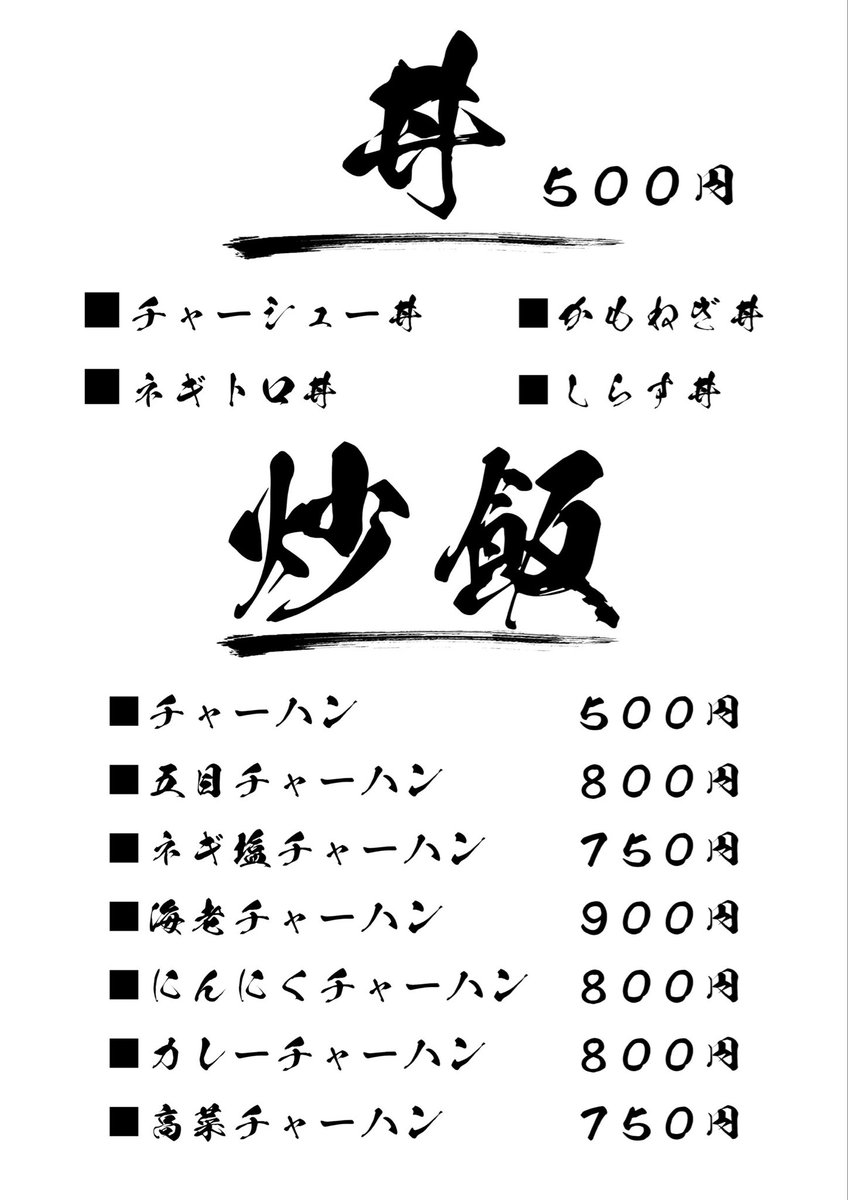 丼 500円
■チャーシュー丼 ■かもねぎ丼
■ネギトロ丼 ■しらす丼
炒飯
■チャーハン 500円
■五目チャーハン 800円
■ネギ塩チャーハン 750円
■海老チャーハン 900円
■にんにくチャーハン 800円
■カレーチャーハン 800円
■高菜チャーハン 750円